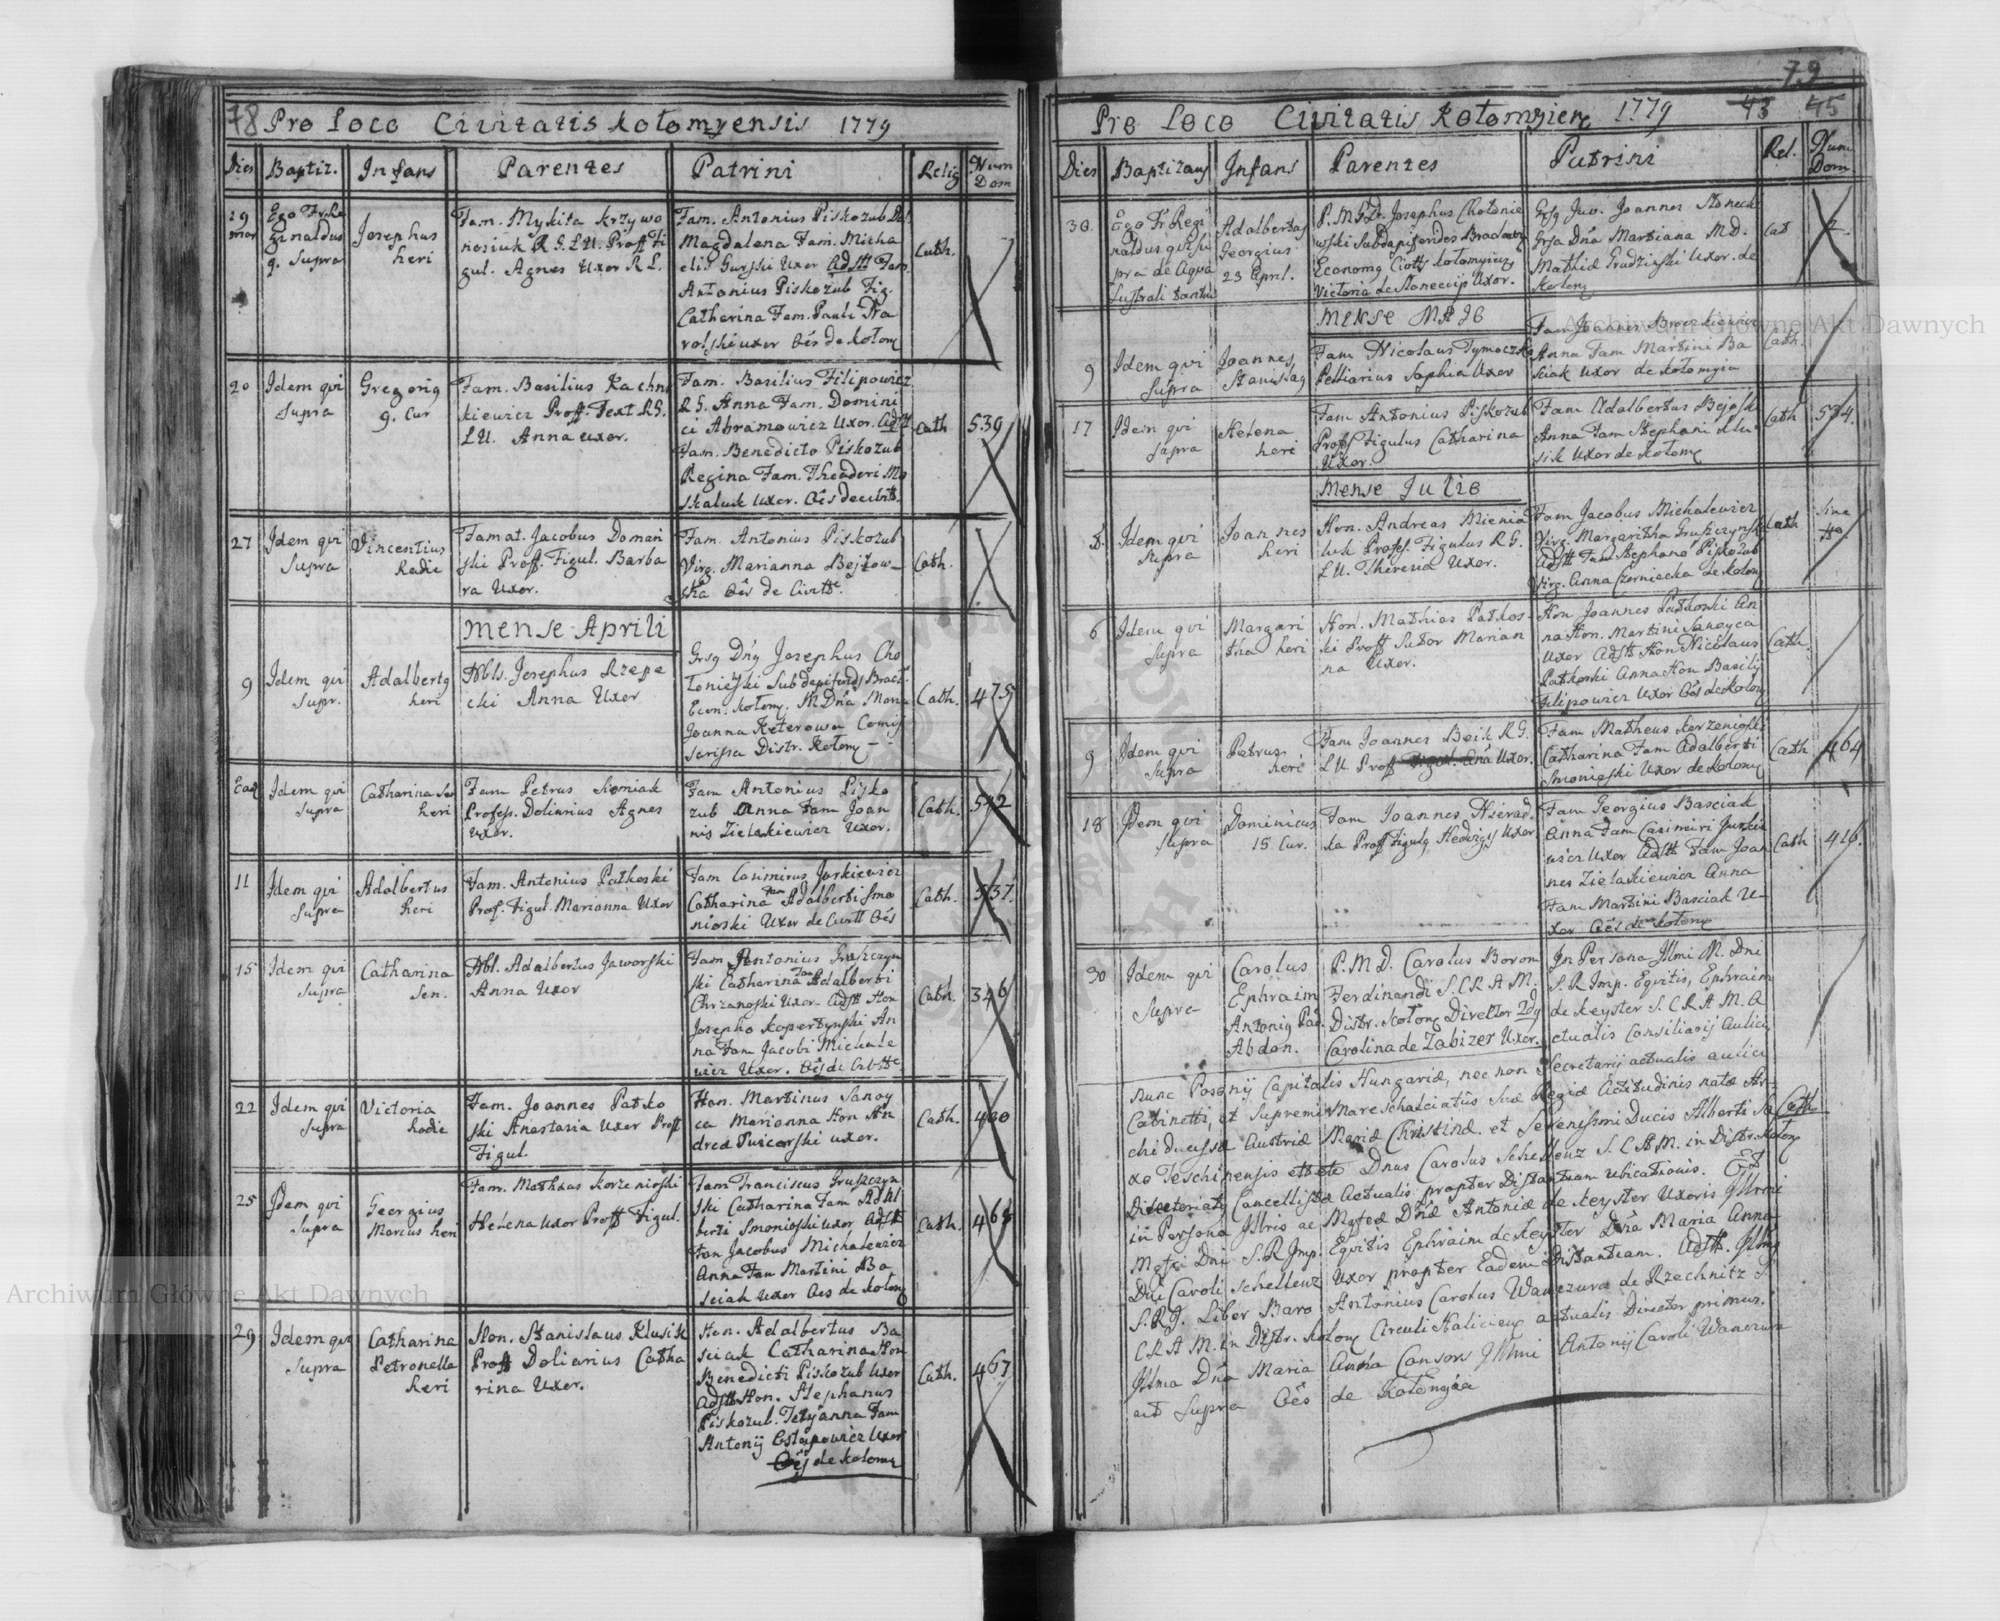 78 Pro Loco Civitatis Kołomyensis 1779
Dies Baptiz. Infans Parentes Patrini Relig Num Dom
19 mar
Ego Fr Re
ginaldus
q. Supra
Josephus
heri
Fam. Mykita Krzywo
nosiuk R. G. L U. Proff Fi
gul. Agnes Uxor R L.
Fam. Antonius Piskozub Et
Magdalena Fam. Micha
elis Gurski Uxor Adstt Fam.
Antonius Piskozub Fig.
Catharina Fam. Pauli Na
rolski uxor Oes de Kołom
Cath.
20
Idem qvi
Supra
Gregorig
9. Cur
Fam. Basilius Kachni
kiewicz Proff. Text. R G.
L U. Anna uxor.
Fam. Basilius Filipowicz
R G. Anna Fam. Domini
ci Abramowicz Uxor. Adstt
Fam. Benedicto Piskozub
Regina Fam. Theodori Mo
skaluk Uxor. Oes de civit.
Cath
539
27
Idem qvi
Supra
Vincentius
hodie
Famat. Jacobus Doman
ski Proff. Figul. Barba
ra Uxor.
Fam. Antonius Piskozub
Virg. Marianna Bejzow-
ska Oes de Civitte
Cath.
Mense Aprili
9
Idem qvi
Supr.
Adalbertg
heri
Nbls. Josephus Rzepe
cki Anna Uxor
Grsg Dng Josephus Cho
łoniewski Subdapiferids Bracl.
Econ. Kołomy. M Dna Maria
Joanna Keterowa Comis
sarissa Distr. Kołomy
Cath.
475
Ead
Idem qvi
supra
Catharina Sen
heri
Fam Petrus Słomiak
Profess. Doliarius Agnes
Uxor.
Fam Antonius Pisko
zub Anna Fam Joan
nis Zielaskiewicz Uxor.
Cath.
542
11
Idem qvi
Supra
Adalbertus
heri
Fam. Antonius Patkoski
Prof. Figul. Marianna Uxor
Fam Casimirus Jurkiewicz
Catharina Fam Adalberti Smo
nioski Uxor de Civitt Oes
Cath.
537.
15
Idem qvi
supra
Catharina
Sen.
Nbl. Adalbertus Jaworski
Anna Uxor
Fam. Antonius Gruszczyn
ski Catharina Fam Adalberti
Chrzanoski Uxor. Adstt Hon
Josepho Kopertynski An
na Fam Jacobi Michale
wicz Uxer. Oes de Civitte
Cath.
346
22
Idem qvi
supra
Victoria
hodie
Fam. Joannes Patko
ski Anastasia Uxer Proff
Figul.
Hon. Martinus Sanoy
ca Marianna Hon An
drea Puicorski uxor.
Cath.
460
25
Idem qvi
Supra
Georgius
Marcus heri
Fam. Matheus Korzenioski
Helena Uxor Proff Figul.
Fam Franciscus Gruszczyn
ski Catharina Fam Adal
berti Smonioski uxor Adstt
Fam Jacobus Michalewicz
Anna Fam Martini Ba
sciak Uxer Oes de Kołomy
Cath.
465
29
Idem qvi
Supra
Catharina
Petronella
heri
Hon. Stanislaus Klusik
Proff Doliarius Catha
rina Uxer.
Hon. Adalbertus Ba
sciak Catharina Hon
Benedicti Piskozub Uxer
Adstt Hon. Stephanus
Piskozub. Tetyanna Fam
Antonij Ostapowicz Uxor
Oes de Kołomy
Cath.
467
79
Pro Loco Civitatis Kołomyien 1779 43 45
Dies Baptizans Infans Parentes Patrini Rel. Num Dom.
30
Ego Fr Regi
naldus qvi Su
pra de Aqua
Lustrali tantu
Adalbertus
Georgius
23 April.
P. M G D. Josephus Chołonie
wski Subdapiferides Braclav
Economg Ciotts Kołomyien
Victoria de Słoneccijs Uxor.
Grsg Juv. Joannes Słoneck
Grsa Dna Martiana M D.
Mathid Grudzinski Uxor. de
Kołomy
Cat
2.
Mense Majo
9
Idem qvi
Supra
Joannes
Stanislag
Fam Nicolaus Tymoczko
Pelliarius Sophia Uxer
Anna Fam Martini Ba
sciak Uxor de Kołomyia
Cath.
17
Idem qvi
Supra
Helena
heri
Fam Antonius Piskozub
Proff Figulus Catharina
Uxor.
Fam Adalbertus Bejosk
Anna Fam Stephani Klu
sik Uxor de Kołomy
Cath
534.
Mense Julio
Idem qvi
Supra
Joannes
heri
Hon. Andreas Mienia
luk Profess. Figulus R G.
L U. Theresia Uxor.
Fam Jacobus Michalewicz
Virg. Margaritha Gruszczynsk
Adstt Fam Stephano Piskozub
Virg. Anna Czerniacka de Kołomy
Cath
Sine
No
6
Idem qvi
Supra
Margari
tha heri
Hon. Mathias Patkos-
ki Proff Sutor Marian
na Uxor.
Hon Joannes Patkoski An
na Hon. Martini Sanoyca
Uxor Adstt Hon Nicolaus
Patkoski Anna Hon Basilij
Filipowicz Uxor Oes de Kołomy
Cath.
9
Idem qvi
Supra
Petrus
heri
Fam Joannes Beik R G.
L U Proff Figul. Ana Uxor.
Fam Matheus Korzenioski
Catharina Fam Adalberti
Smonioski Uxor de Kołomy
Cath
464
18
Idem qvi
Supra
Dominicus
15 Cur.
Fam Joannes Nierad
ka Proff Figulg Hedvigis Uxor
Fam Georgius Basciak
Anna Fam Casimiri Jurkie
wicz Uxor Adstt Fam Joan
nes Zielaskiewicz Anna
Fam Martini Basciak U-
xor Oes de Kołomy
Cath
416.
30
Idem qvi
Supra
Carolus
Ephraim
Antonig Pad.
Abdon.
P. M D. Carolus Boron
Ferdinandi S. C R A M.
Distr. Kołomy Director 2dg
Carolina de Zabizer Uxor.
In Persona Illmi M. Dni
S. R Imp. Eqvitis, Ephraim
de Keyster S. C R A M. A
ctualis Consiliarij Aulici
nunc Posonij Capitalis Hungariæ, nec non Secretarij actualis aulici
Cabinetti, et Supremi Mareschalciatus Suæ Regiæ Actitudinis natæ Ar-
chiducissæ Austriæ Mariæ Christinæ. et Serenissimi Ducis Alberti Sa Cath
xo Teschinensis etc etc Dnus Carolus Schellenz S. C. A M. in Distr. Kołomy
Directoriatg Cancellista Actualis propter Distantiam Ubicationis. Et
in Persona Illris ac Mgfcæ Dnæ Antoniæ de Keyster Uxoris Illrmi
Mgfci Dni S. R Imp. Eqvitis Ephraim de Keyster Dna Maria Anna
Dni Caroli Schellenz Uxor propter Eadem Distantiam. Adstt. Illmg
S. R J. Liber Baro Antonius Carolus Wanczura de Rzechnitz S.
C R A M. in Distr. Kołomy Circuli Haliciens actualis Director primus.
Illma Dna Maria Anna Consors Illmi Antonij Caroli Wanczura
ut Supra Oes de Kołomyia
Archiwum Główne Akt Dawnych
Archiwum Główne Akt Dawnych